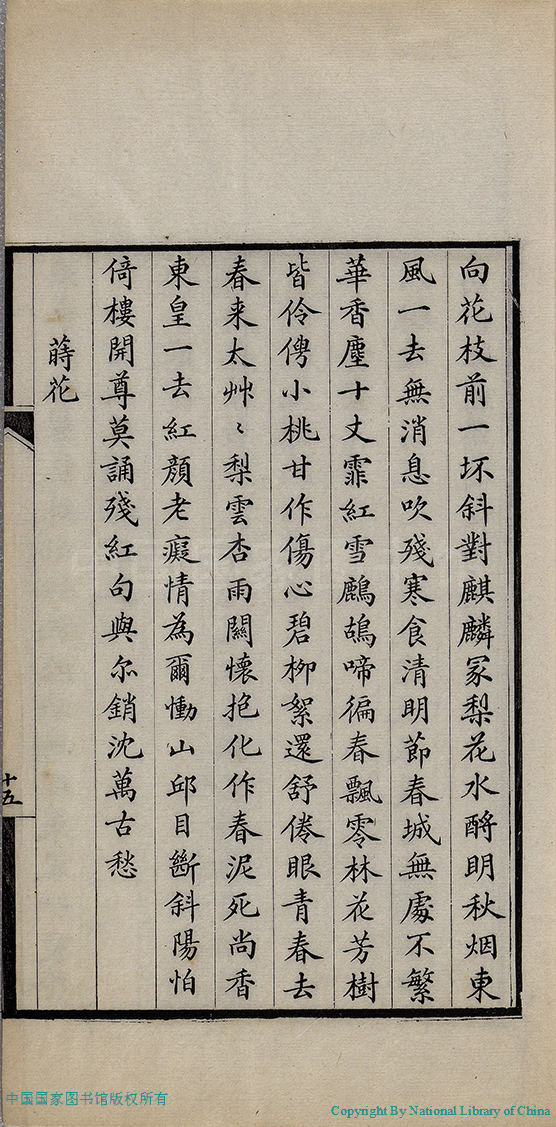 向花枝前一坏斜對麒麟冢梨花水酹明秋烟東
風一去無消息吹殘寒食清明節春城無處不繁
華香塵十丈霏紅雪鷓鴣啼徧春飄零林花芳樹
皆伶俜小桃甘作傷心碧柳絮還舒倦眼青春去
春来太艸〻梨雲杏雨關懷抱化作春泥死尚香
東皇一去紅顏老癡情為爾慟山邱目斷斜陽怕
倚樓開尊莫誦殘紅句與尔銷沈萬古愁
蒔花
十五
中国国家图书馆版权所有
Copyright By National Library of China